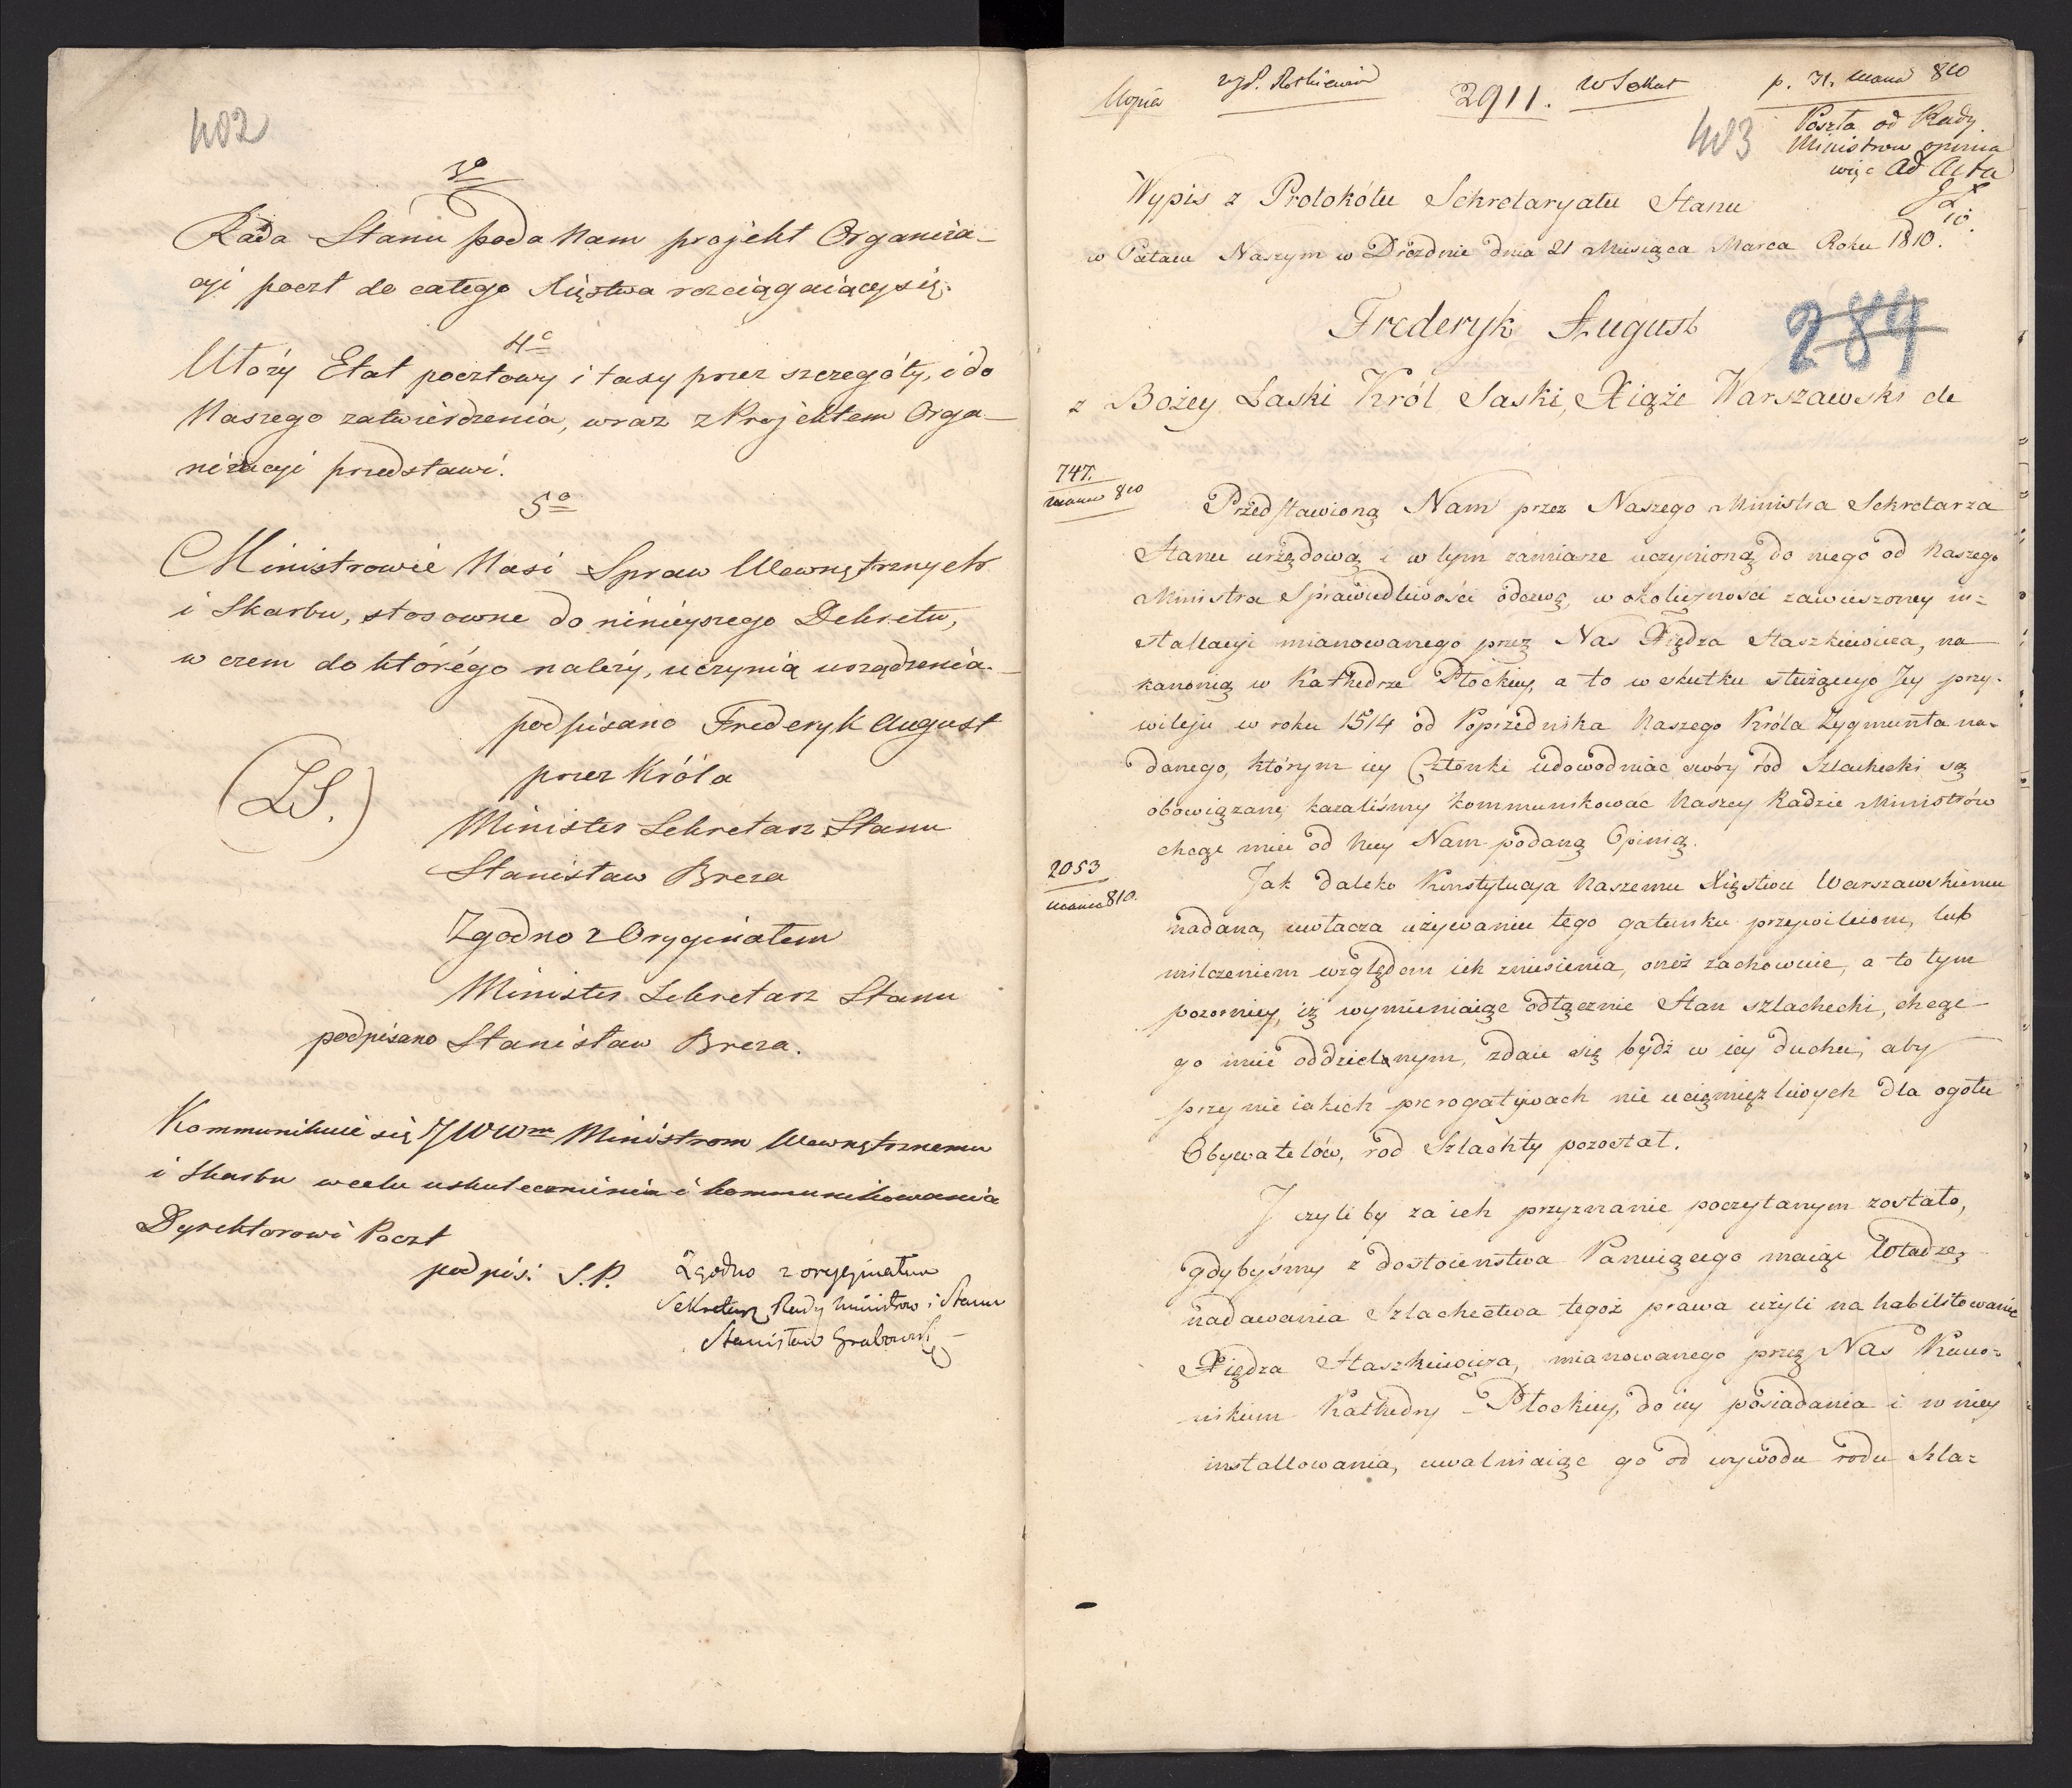 402
3o
Rada Stanu poda Nam projekt Organiza-
cyi poczt do całego Xięstwa rozciągaiącey się.
4o
Ułoży Etat pocztowy i taxy przez szczegóły, i do
Naszego zatwierdzenia, wraz z Projektem Orga-
nizacyi przedstawi.
5o
Ministrowie Nasi Spraw Wewnętrznych
i Skarbu, stosowne do ninieyszego Dekretu,
w czem do którego należy, uczynią urządzenia.
podpisano Frederyk August
przez Króla
(LS.)
Minister Sekretarz Stanu
Stanisław Breza
Zgodno z Oryginałem
Minister Sekretarz Stanu
podpisano Stanisław Breza.
Kommunikuie się JWWm Ministrom Wewnętrznemu
i Skarbu w celu uskutecznienia i kommunikowania
Dyrektorowi Poczt
podpis: S.P.
Zgodno z oryginałem
Sekretarz Rady Ministrów i Stanu
Stanisław Grabowski
Kopia
2911.
p. 31. Marca 810
403
Poszła od Rady
Ministrow opinia
więc Ad Acta
Wypis z Protokółu Sekretaryatu Stanu
w Pałacu Naszym w Dreźdnie dnia 21 Miesiąca Marca Roku 1810.
Frederyk August
289
z Bożey Łaski Król Saski, Xiąże Warszawski etc
747.
marca 810
Przedstawioną Nam przez Naszego Ministra Sekretarza
Stanu urzędową i w tym zamiarze uczynioną do niego od Naszego
Ministra Sprawiedliwości odezwę, w okoliczności zawieszoney in=
stallacyi mianowanego przez Nas Xiędza Staszkiewicza, na
kanonią w Kathedrze Płockiey, a to w skutku służącego Jey przy-
wileju w roku 1514 od Poprzednika Naszego Króla Zygmunta na-
danego, którym iey Członki udowodniać swóy ród Szlachecki są
obowiązane, kazaliśmy kommunikować Naszey Radzie Ministrów
chcąc mieć od Niey Nam podaną Opinią.
2053
marca 810.
Jak daleko Konstytucya Naszemu Xięstwu Warszawskiemu
nadana, uwłacza używaniu tego gatunku przywileiom, lub
milczeniem względem ich zniesienia, oneż zachowuie, a to tym
pozorniey, iż wymieniaiąc odłącznie Stan szlachecki, chcąc
go mieć oddzielnym, zdaie się bydź w iey duchu, aby
przy nieiakich prerogatywach nie uciążliwych dla ogółu
Obywatelów, ród Szlachty pozostał.
I czyliby za ich przyznanie poczytanym zostało,
gdybyśmy z dostoieństwa Panuiącego maiąc Władzę,
nadawania Szlachectwa tegoż prawa użyli na habilitowanie
Xiędza Staszkiewicza, mianowanego przez Nas Kano=
nikiem Kathedry Płockiey, do iey posiadania i w niey
installowania, uwalniaiąc go od wywodu rodu Szla=